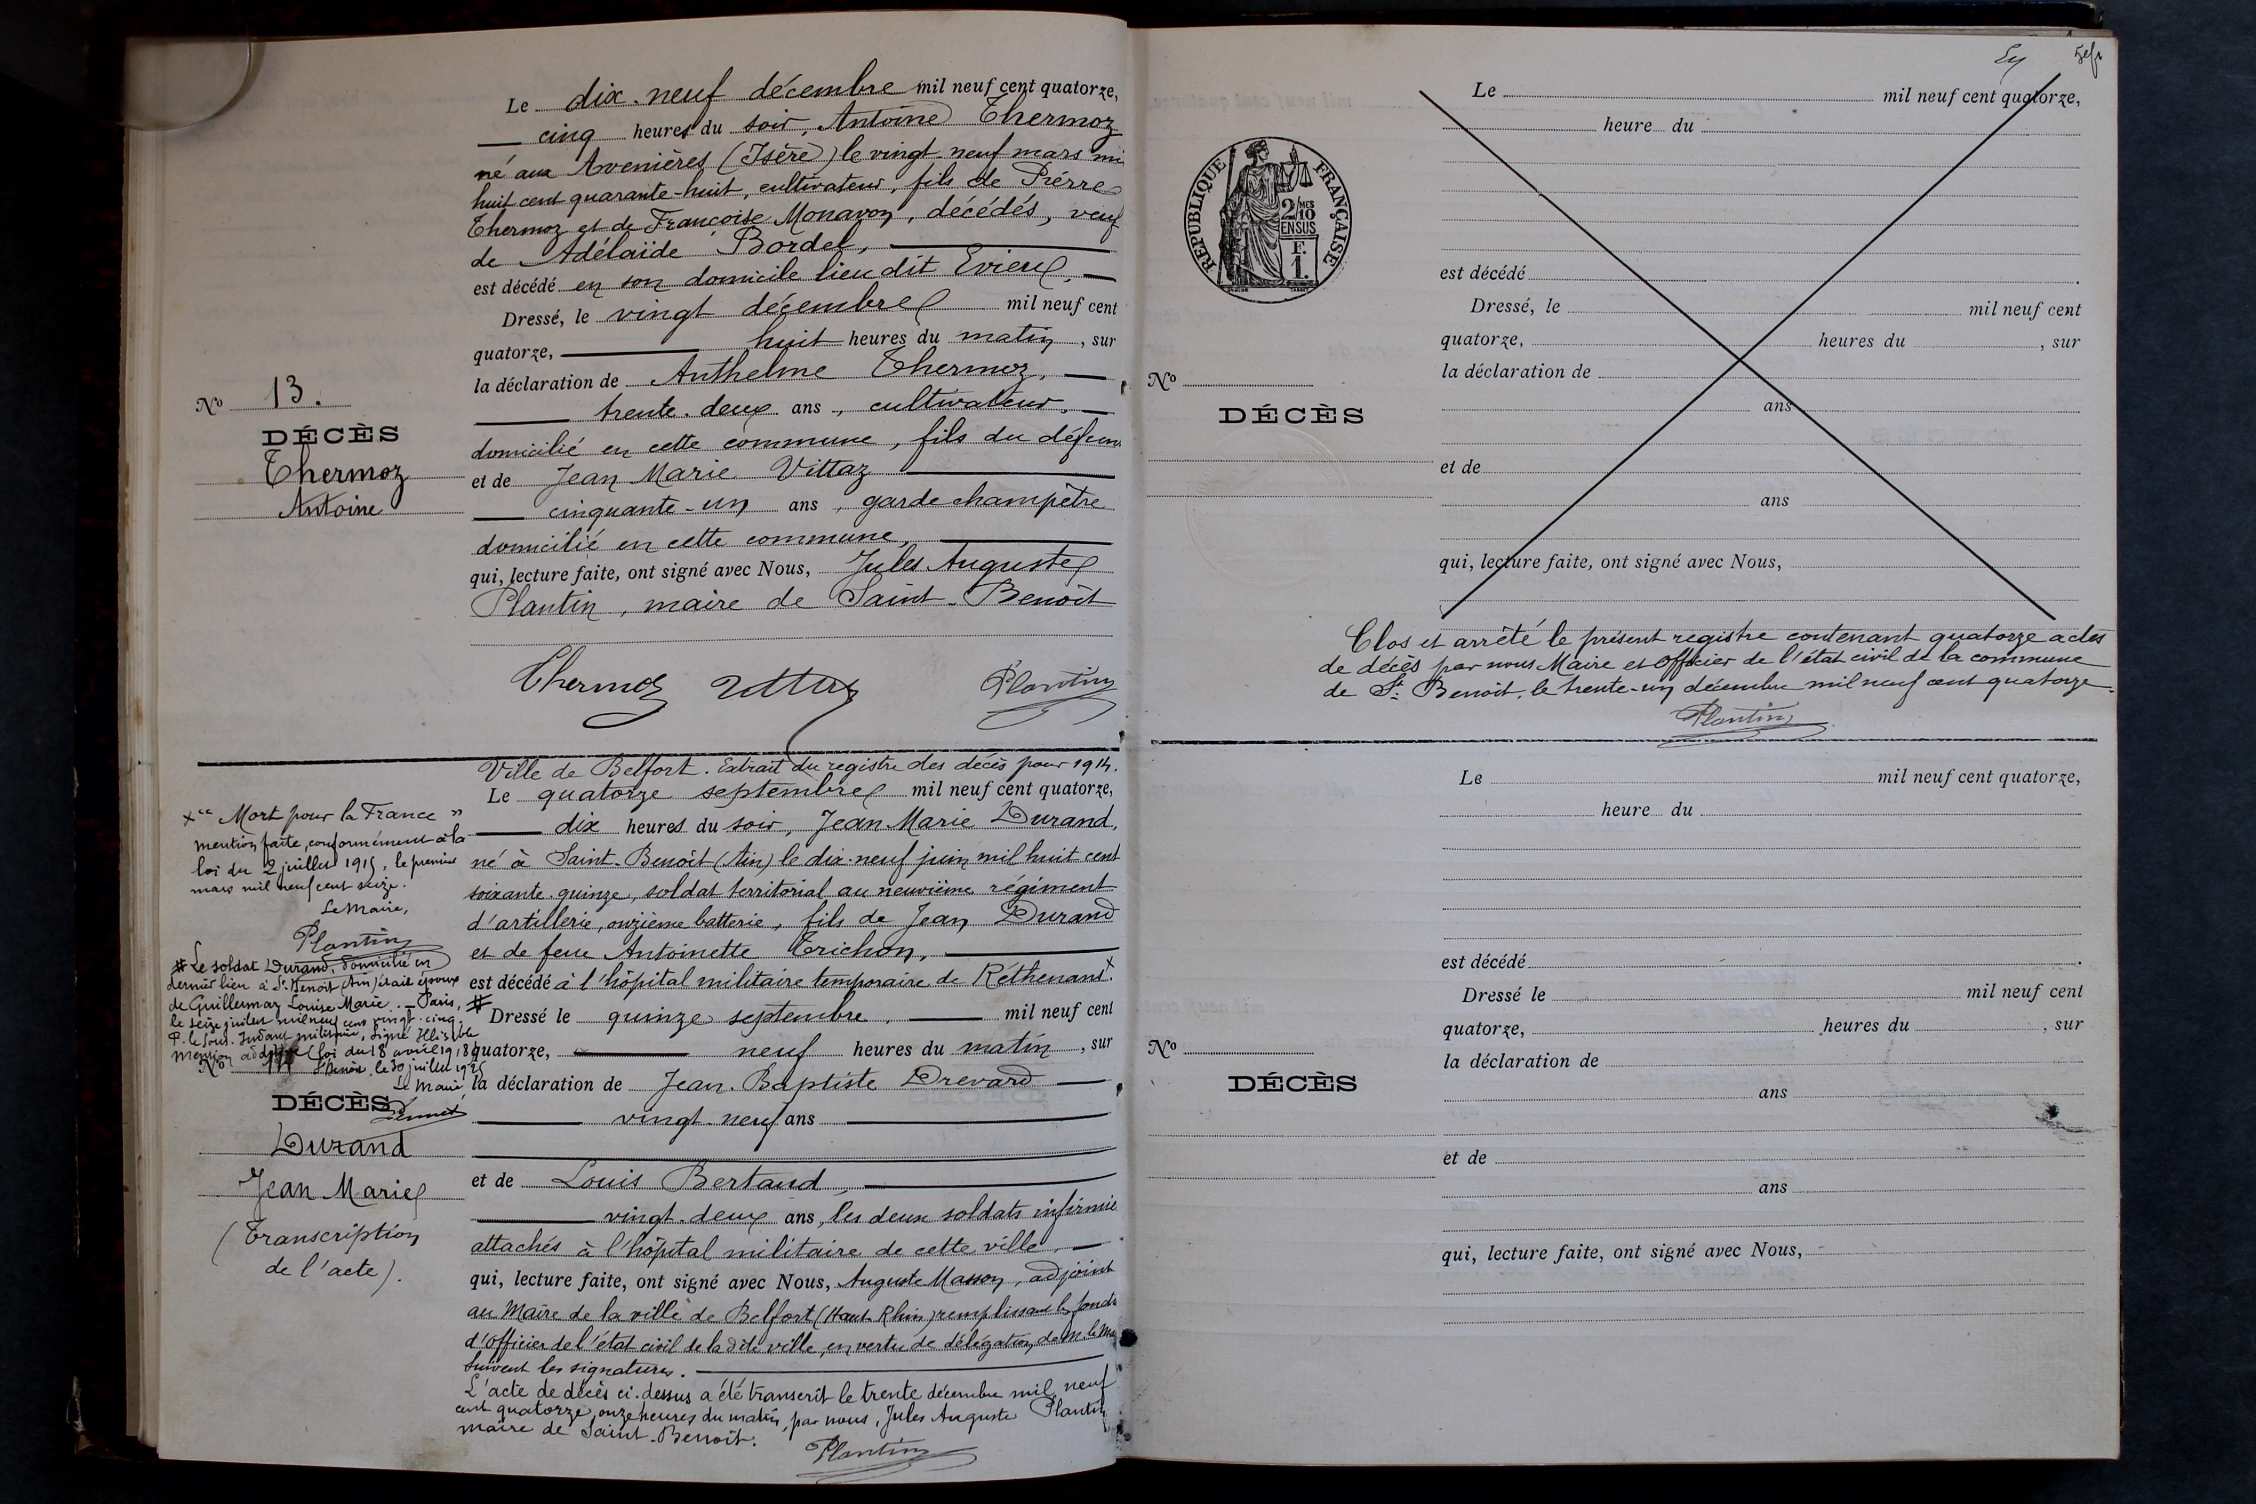 Le dix-neuf décembre mil neuf cent quatorze,
cinq heures du soir, Antoine Thermoz
né aux Avenières (Isère) le vingt-neuf mars mi
huit cent quarante-huit, cultivateur, fils de Piérre
Thermoz et de Françoise Monavon, décédés, veuf
de Adélaïde Bordel,
est décédé en son domicile lieu dit Evieu,
Dressé, le vingt décembre mil neuf cent
quatorze, huit heures du matin, sur
la déclaration de Anthelme Thermoz,
trente-deux ans, cultivateur,
domicilié en cette commune, fils du défun
et de Jean Marie Vittaz
cinquante-un ans, garde champêtre
domicilié en cette commune,
qui, lecture faite, ont signé avec Nous, Jules Auguste
Plantin, maire de Saint-Benoît
Thermoz Vittaz Plantin
No 13.
DÉCÈS
Thermoz
Antoine
Ville de Belfort. Extrait du registre des décès pour 1914.
Le quatorze septembre mil neuf cent quatorze,
dix heures du soir, Jean Marie Durand,
né à Saint-Benoît (Ain) le dix-neuf juin mil huit cent
soixante-quinze, soldat territorial au neuvième régiment
d'artillerie, onzième batterie, fils de Jean Durand
et de feue Antoinette Trichon,
est décédé à l'hôpital militaire temporaire de Réthenans x.
# Dressé le quinze septembre, mil neuf cent
quatorze, neuf heures du matin, sur
la déclaration de Jean-Baptiste Drevard
vingt-neuf ans
et de Louis Bertaud,
vingt-deux ans, les deux soldats infirmie
attachés à l'hôpital militaire de cette ville,
qui, lecture faite, ont signé avec Nous, Auguste Masson, adjoint
au Maire de la ville de Belfort (Haut-Rhin) remplissant les foncti
d'Officier de l'état civil de la dite ville, en vertu de délégation de M. le Ma
Suivent les signatures.
L'acte de décès ci-dessus a été transcrit le trente décembre mil neuf
cent quatorze, onze heures du matin, par nous, Jules Auguste Plantin
maire de Saint-Benoît.
Plantin
x "Mort pour la France"
mention faite, conformément à la
loi du 2 juillet 1915, le premier
mars mil neuf cent seize.
Le Maire,
Plantin
# Le soldat Durand, domicilié en
dernier lieu à St-Benoit (Ain) était époux
de Guillermaz Louise Marie. - Paris,
le seize juillet mil neuf cent vingt-cinq.
P. le Sous-Intendant militaire, signé Illisible
Mention (loi du 18 avril 1918)
St Benoit, le 30 juillet 1925
Le Maire,
No
DÉCÈS
Durand
Jean Marie
(Transcription
de l'acte).
Le mil neuf cent quatorze,
heure du
est décédé
Dressé, le mil neuf cent
quatorze, heures du , sur
la déclaration de
ans
et de
ans
qui, lecture faite, ont signé avec Nous,
No
DÉCÈS
RÉPUBLIQUE FRANÇAISE
2/10 MES
EN SUS
F.
1.
Clos et arrêté le présent registre contenant quatorze actes
de décès par nous Maire et Officier de l'état civil de la commune
de St. Benoît, le trente-un décembre mil neuf cent quatorze.
Plantin
Le mil neuf cent quatorze,
heure du
est décédé
Dressé le mil neuf cent
quatorze, heures du , sur
la déclaration de
ans
et de
ans
qui, lecture faite, ont signé avec Nous,
No
DÉCÈS